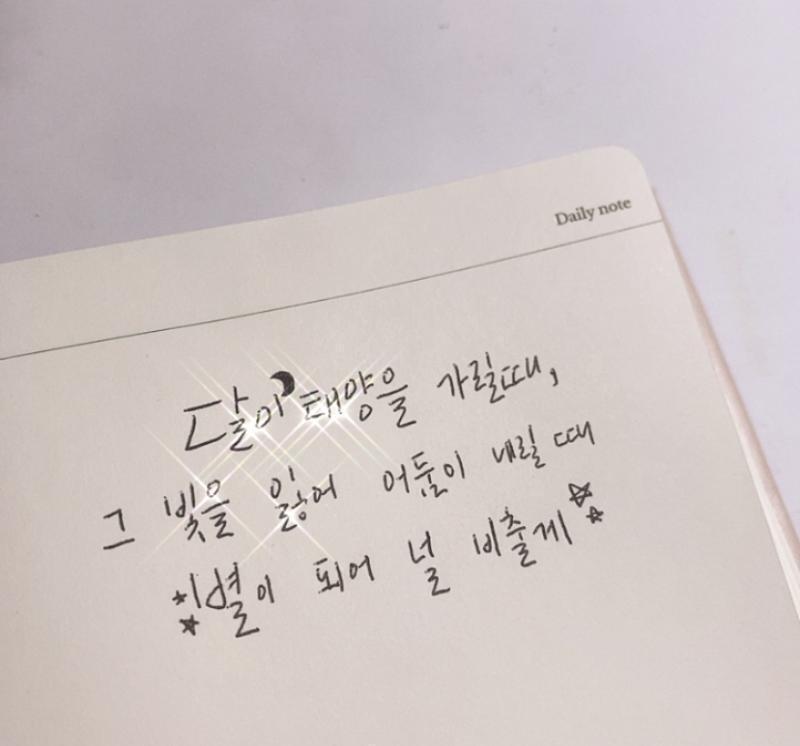 Daily note
달이 태양을 가릴때,
그 빛을 잃어 어둠이 내릴 때
별이 되어 널 비출게